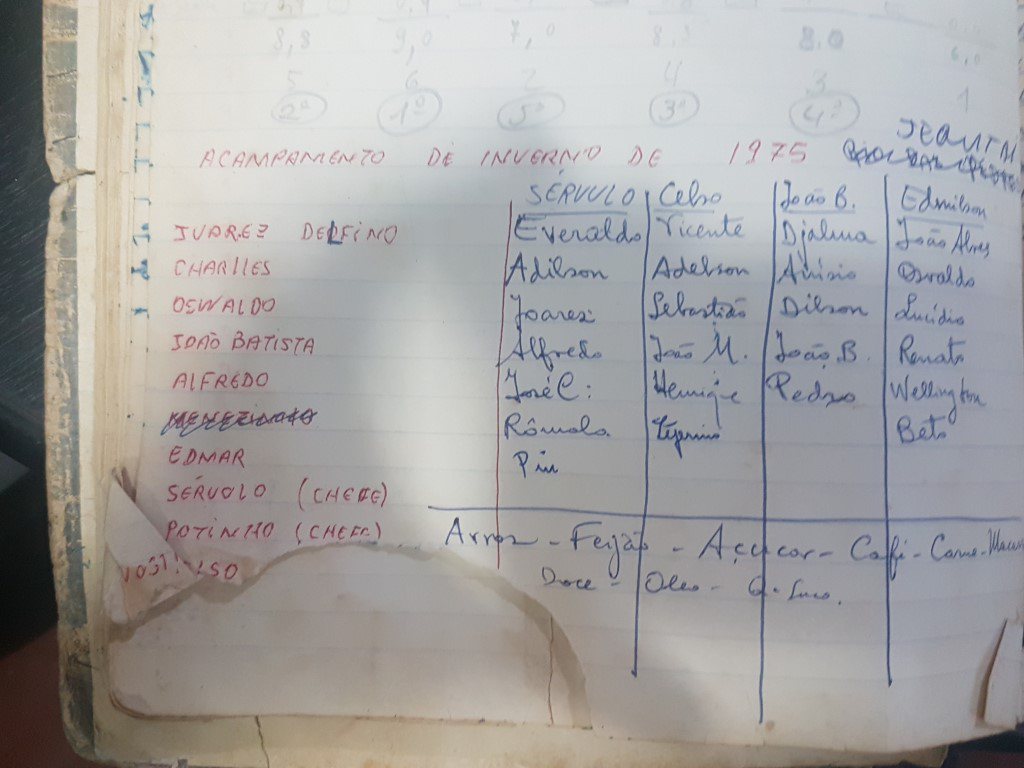 8,8 9,0 7,0 8,5 8.0 6,0
5 6 2 4 3 1
2º 1º 5º 3º 4º
ACAMPAMENTO DE INVERNO DE 1975
SÉRVULO Celso João B. Edmilson
JUAREZ DELFINO Everaldo Vicente Djalma João Alves
CHARLLES Adilson Adelson Aluísio Osvaldo
OSWALDO Joarez Sebastião Dilson Lucídio
JOÃO BATISTA Alfredo João M. João B. Renato
ALFREDO José C: Henrique Pedro Wellington
Rômulo Beto
EDMAR Pin
SÉRVOLO (CHEFE)
POTINHO (CHEFE) Arroz - Feijão - Açúcar - Café - Carne -
Doce - Oleo - Q. Suco.